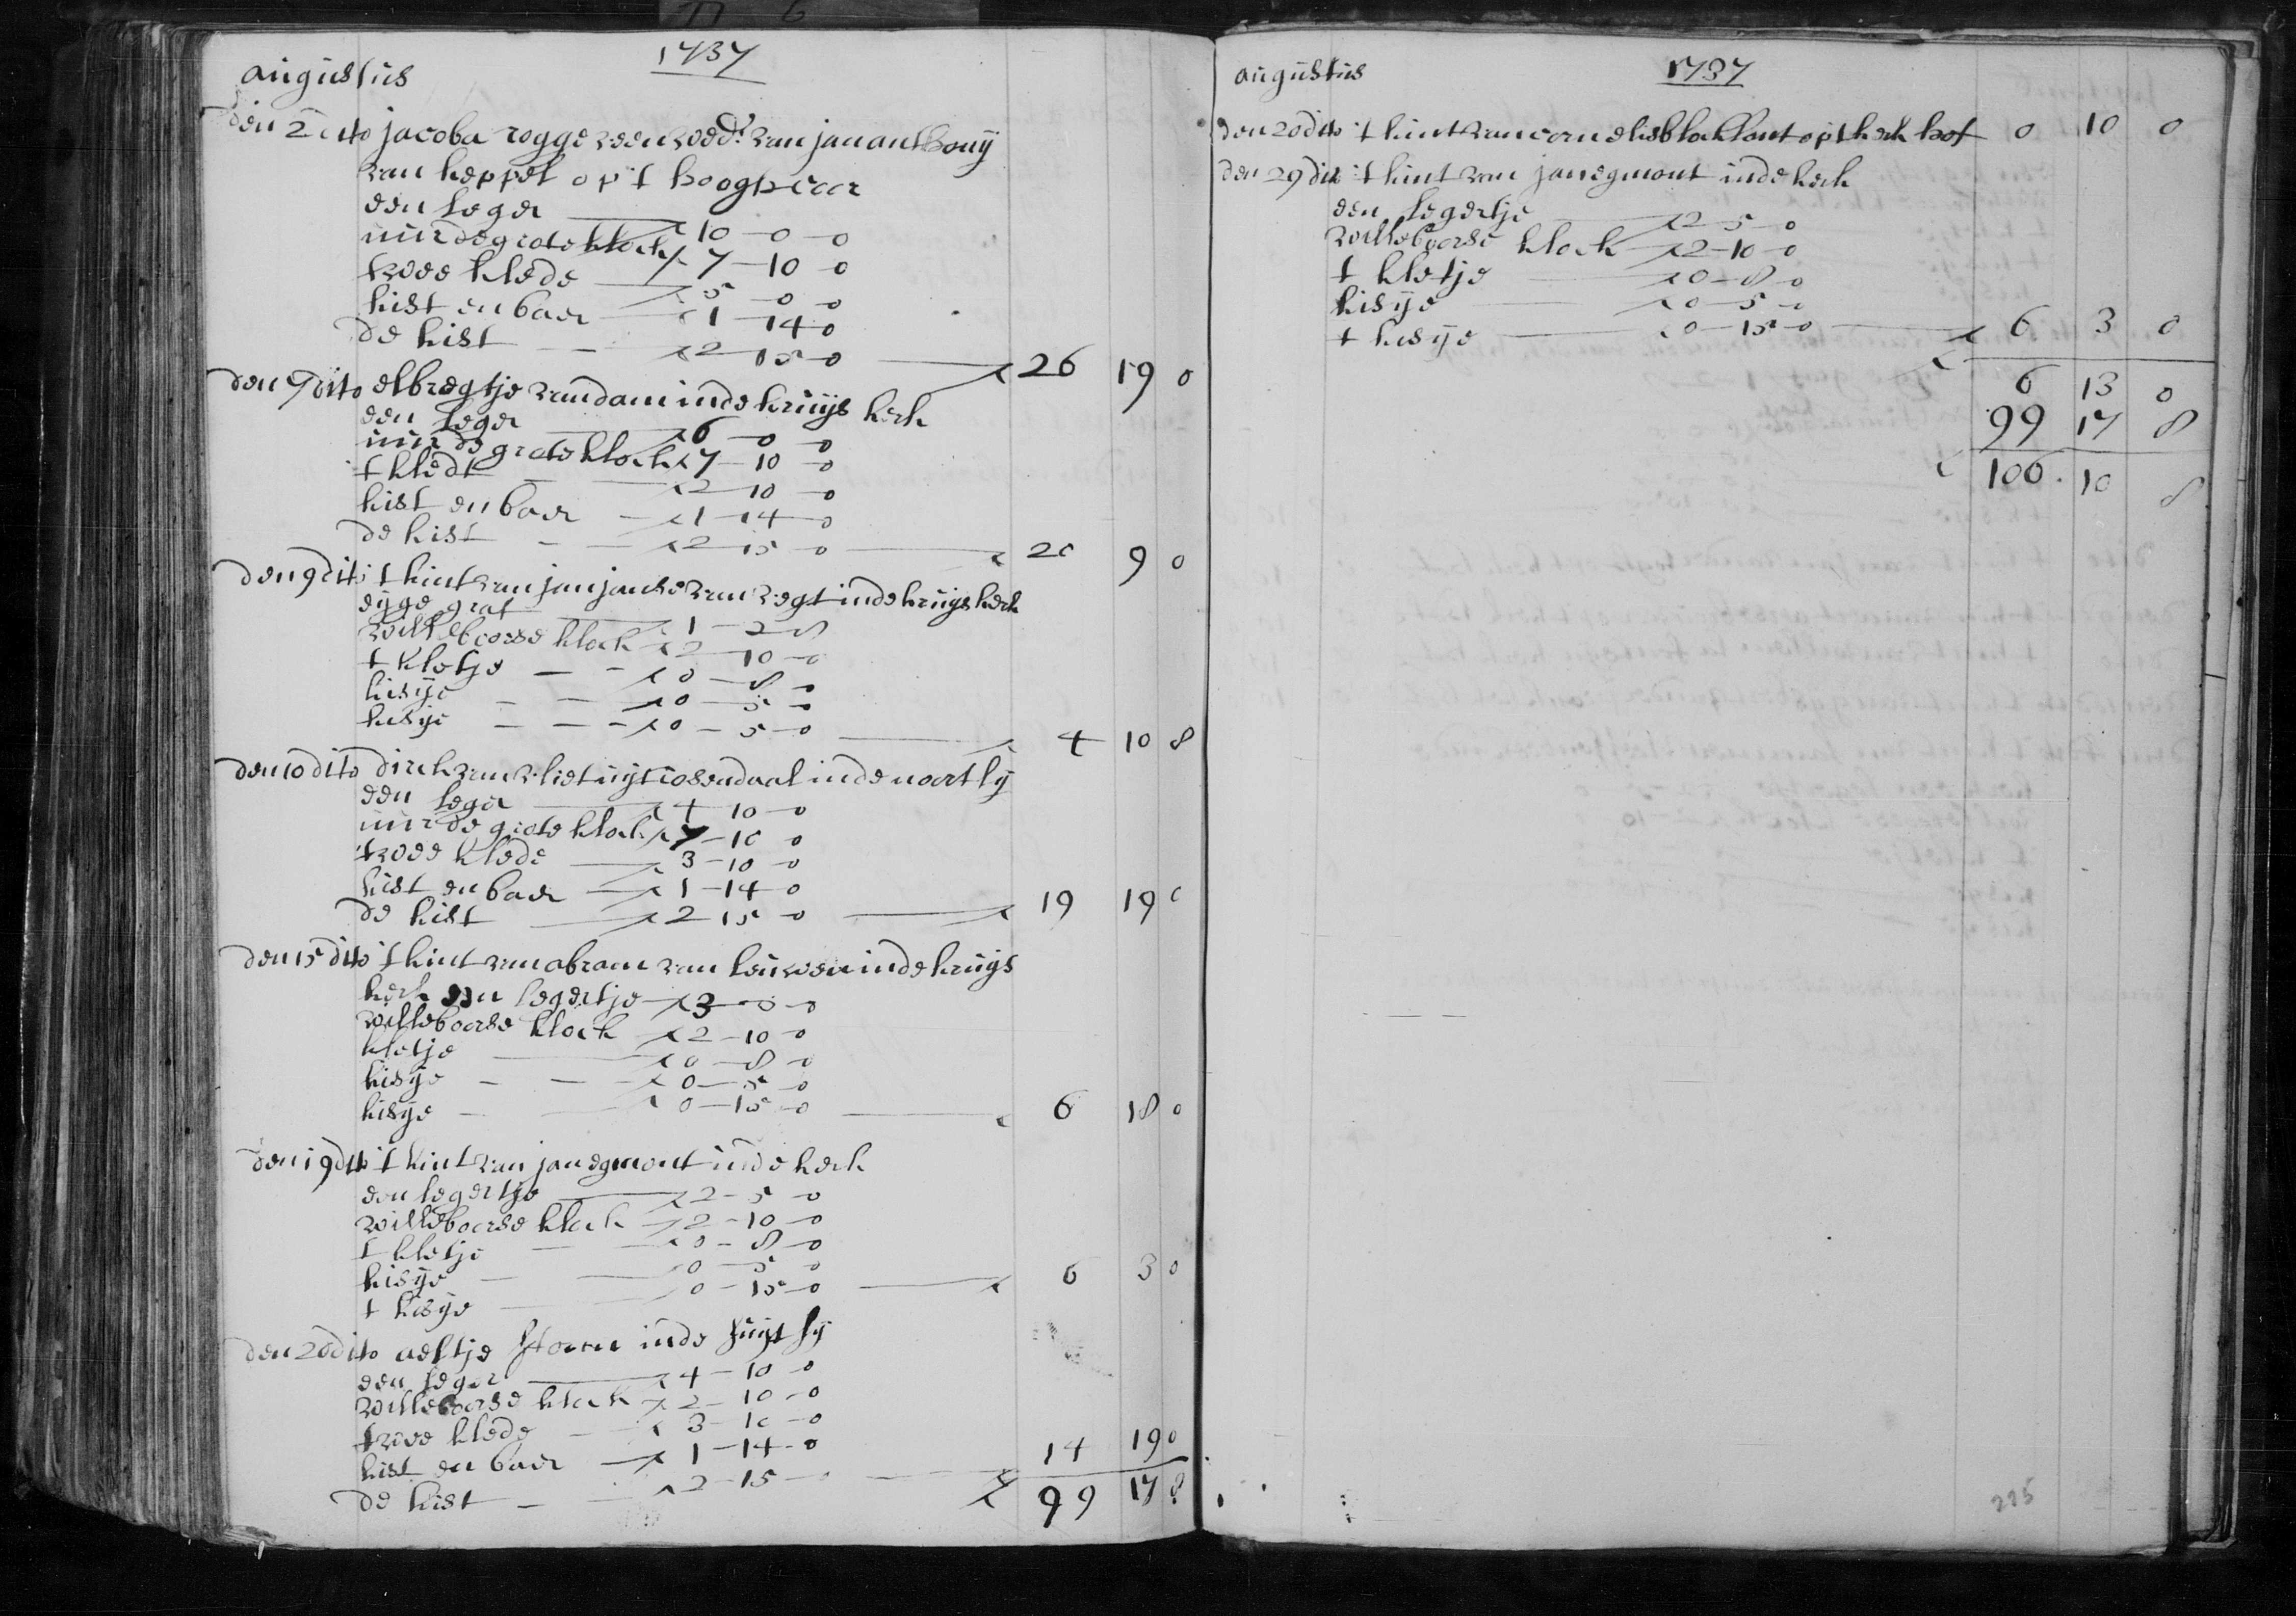 1737
augustus
den 2 dito jacoba roggeveen wedr. van jan anthonij
van keppel op 't hooghcoor
een leger 10 - 0 - 0
uur de grote klock 7 - 10 - 0
twee klede 5 - 0 - 0
kist en baer 1 - 14 - 0
de kist 2 - 15 - 0 26 19 0
den 7 dito elbregtje van dam inde kruijs kerk
een leger 6 - 0 - 0
uur de grote klock 7 - 10 - 0
t kledt 2 - 10 - 0
kist en baer 1 - 14 - 0
de kist 2 - 15 - 0 20 9 0
den 9 dito t kint van jan janse van vegt inde kruijs kerk
eijge graf 1 - 2 - 8
willeboorse klock 2 - 10 - 0
t kletje 0 - 8 - 0
kisije 0 - 5 - 0
kisije 0 - 5 - 0 4 10 8
den 10 dito dirck van vliet uijt rosendaal inde noort sij
een leger 4 - 10 - 0
uur de grote klock 7 - 10 - 0
twee klede 3 - 10 - 0
kist en baer 1 - 14 - 0
de kist 2 - 15 - 0 19 19 0
den 15 dito t kint van abram van leuwen inde kruijs
kerk een legertje 3 - 0 - 0
willeboorse klock 2 - 10 - 0
kletje 0 - 8 - 0
kisije 0 - 5 - 0
kisije 0 - 15 - 0 6 18 0
den 19 dito t kint van jan egmont inde kerk
een legertje 2 - 5 - 0
willeboorse klock 2 - 10 - 0
t kletje 0 - 8 - 0
kisije 0 - 5 - 0
t kisije 0 - 15 - 0 6 3 0
den 20 dito aeltje storm inde suijt sij
een leger 4 - 10 - 0
willeboorse klock 2 - 10 - 0
twee klede 3 - 10 - 0
kist en baer 1 - 14 - 0
de kist 2 - 15 14 19 0
99 17 8
augustus
1737
den 20 dito t kint van cornelis blocklant op t kerk hof 0 10 0
den 29 dito t kint van jan egmont inde kerk
een legertje 2 - 5 - 0
willeboorse klock 2 - 10 - 0
t kletje 0 - 8 - 0
kisije 0 - 5 - 0
t kisije 0 - 15 - 0 6 3 0
6 13 0
99 17 8
106. 10 8
225